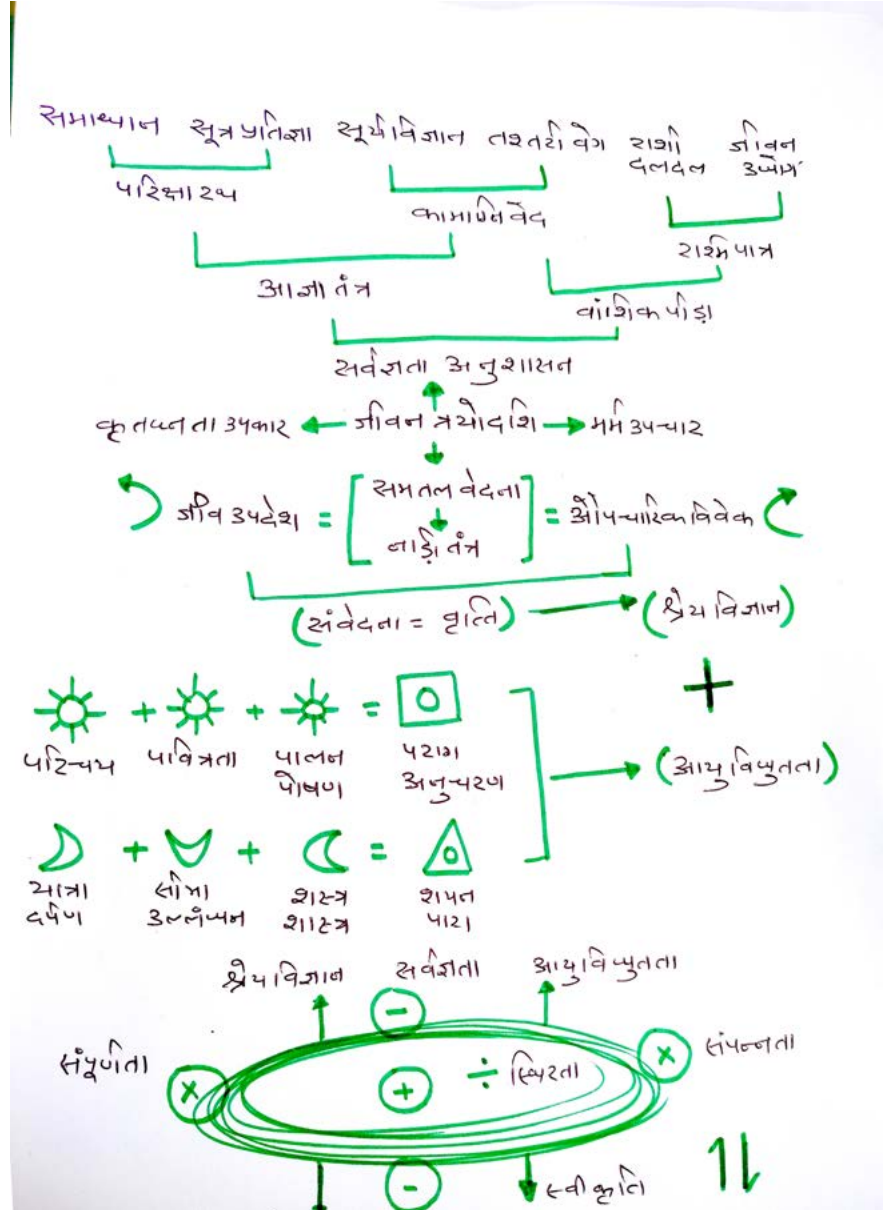 समाध्यान सूत्र प्रतिज्ञा सूर्य विज्ञान तश्तरी वेग राशी दलदल जीवन उद्योग
परिक्षा रथ
कामाग्नि वेद
रश्मि पात्र
आज्ञा तंत्र
वांशिक पीड़ा
सर्वज्ञता अनुशासन
कृतघ्नता उपकार ← जीवन त्रयोदशि → मर्म उपचार
जीव उपदेश = [समतल वेदना
नाड़ी तंत्र] = औपचारिक विवेक
(संवेदना = वृत्ति) → (श्रेय विज्ञान)
+ + =
+
परिचय पवित्रता पालन पोषण पराग अनुचरण
→ (आयु विद्युतता)
+ + =
यात्रा दर्पण सीमा उल्लंघन शस्त्र शास्त्र शयन पाश
श्रेय विज्ञान सर्वज्ञता आयु विद्युतता
संपूर्णता × - × संपन्नता
+ ÷ स्थिरता
- स्वीकृति